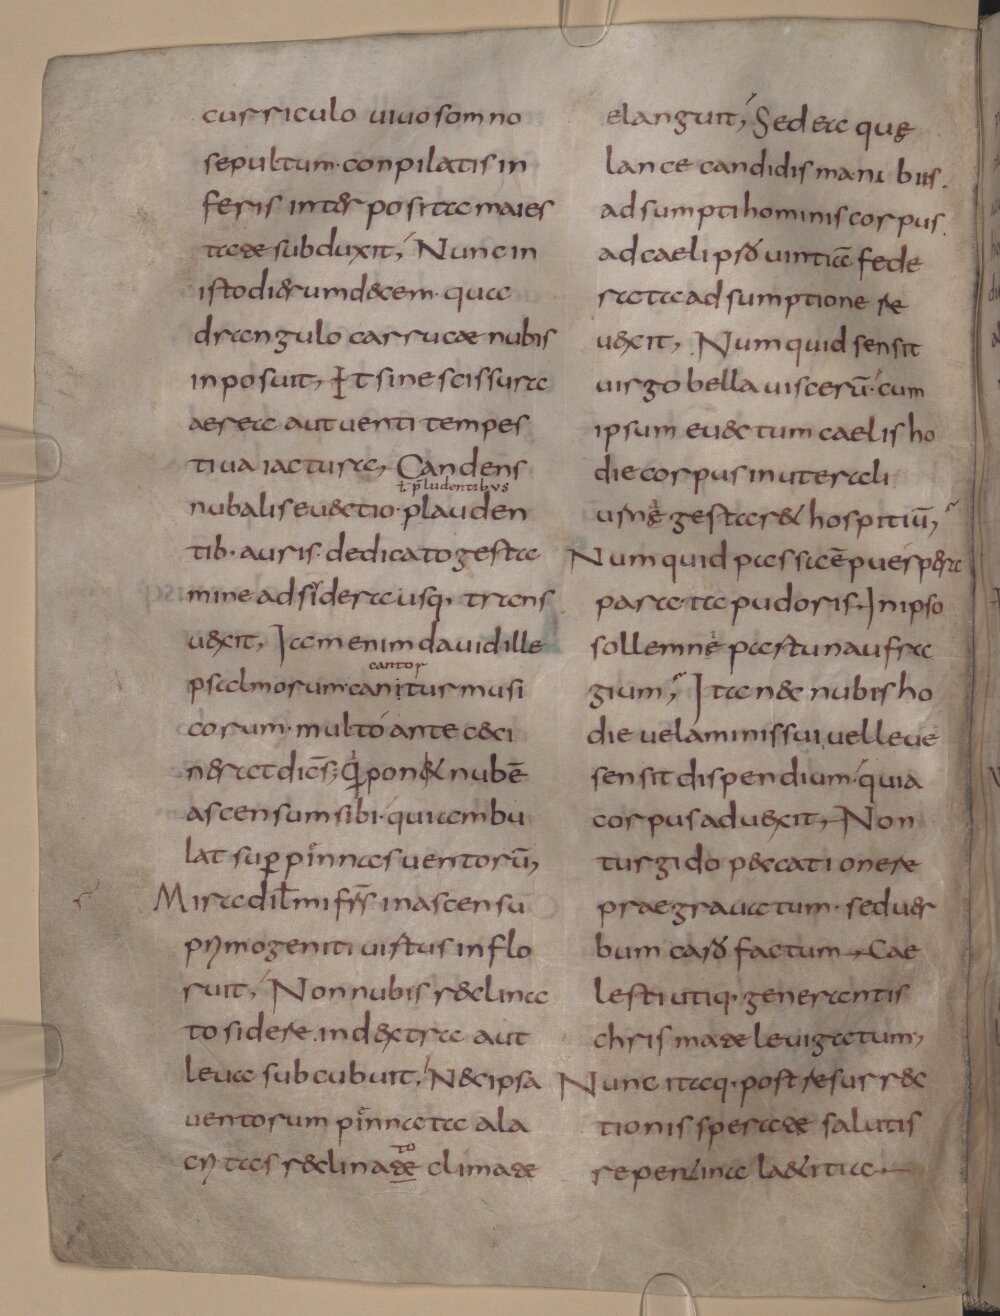 curriculo uiuo somno
sepultum· conpilatis in
feris interposita maies
tate subduxit, Nunc in
isto dierum decem· quae
drangulo carrucae nubis
inposuit, Et sine scissura
aerea aut uenti tempes
tiua iactura, Candens
ł p̄ludentibus
nubalis euectio· plauden
tib· auris· dedicato gesta
mine ad sidera usq· trans
uexit, Iam enim dauid ille
cantor
psalmorum· canitur musi
corum· multo ante ceci
nerat dic̄s; q̇ ponet nubē
ascensum sibi· qui ambu
lat suꝑ pinnas uentorū,
Mira dil̄mi fr̄s in ascensu
primogeniti uirtus inflo
ruit, Non nubis reclina
to sidere in dextra aut
leua subcubuit, Nec ipsa
uentorum pinnata ala
to
critas reclinate climate
elanguit, Sed ea que
lance candidis manibus.
adsumpti hominis corpus.
ad caeli p̄sorum uintiā fede
rata adsumptione re
uexit, Numquid sensit
uirgo bella uiscerū· cum
ipsum euectum caelis ho
die corpus in uterali
urne gestaret hospitiū,
Numquid passa ē puerpera
para·ta pudoris, In ipso
sollemne partu naufra
gium, Ita nec nubis ho
die uelaminis sui uel leue
sensit dispendium· quia
corpus aduexit, Non
turgido peccatione re
praegrauatum· sed uer
bum caro factum, Cae
lesti utiq· generantis
chrismate leuigatum,
Nunc itaq· post resurrec
tionis speratae salutis
repentina laetitia